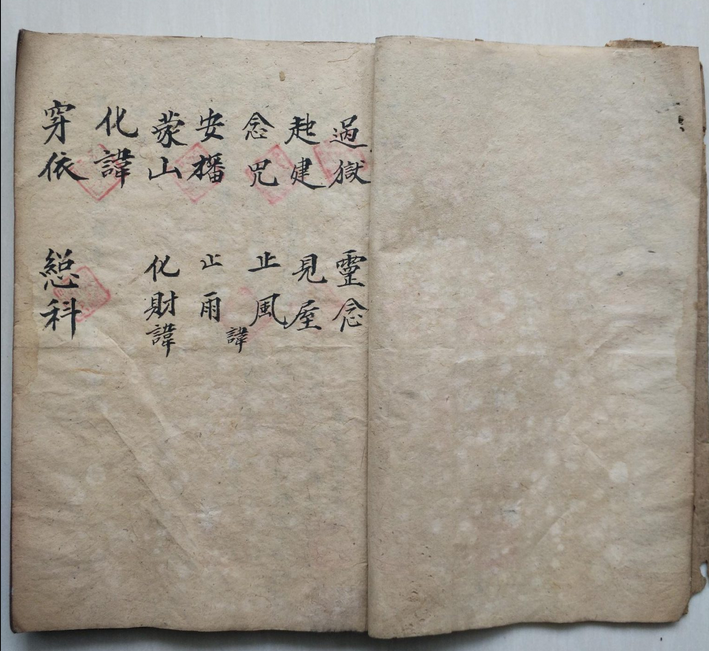 過獄　靈念
赴建　見屋
念咒　止風
諱
安播　止雨
蒙山　化財諱
化諱
穿依　総科